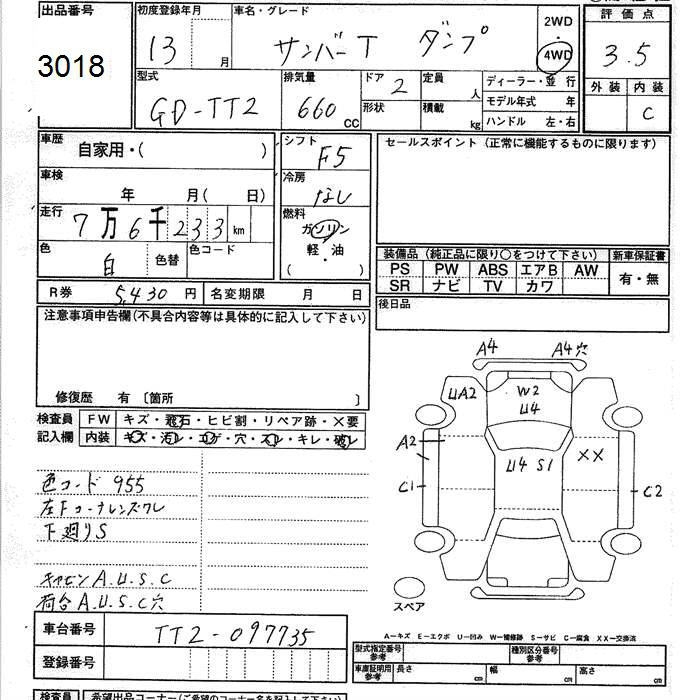 出品番号 初度登録年月 車名・グレード 2WD・4WD 評価点
3018 13 月 サンバーT ダンプ 3.5
型式 排気量 ドア 2 定員 人 ディーラー・並行 外装 内装
GD-TT2 660 CC 形状 積載 kg モデル年式 年 C
ハンドル 左・右
車歴 自家用・( ) シフト F5 セールスポイント (正常に機能するものに限ります)
車検 年 月( 日) 冷房 なし
走行 7万6千233km 燃料 ガソリン・軽・油 ( )
色 白 色替 色コード
装備品 (純正品に限り○をつけて下さい) 新車保証書
PS PW ABS エアB AW 有・無
SR ナビ TV カワ
R券 5,430円 名変期限 月 日 後日品
注意事項申告欄(不具合内容等は具体的に記入して下さい)
修復歴 有 〔箇所 〕
検査員 FW キズ・飛石・ヒビ割・リペア跡・×要
記入欄 内装 キズ・汚レ・コゲ・穴・スレ・キレ・破レ
色コード 955
左Fコーナレンズワレ
下廻りS
キャビン A.U.S.C
荷台 A.U.S.C穴
A4 A4穴
UA2 W2
U4
A2 U4 S1 XX
C1 C2
スペア
A―キズ E―エクボ U―凹み W―補修跡 S―サビ C―腐食 XX―交換済
車台番号 TT2-097735
登録番号
型式指定番号 参考 種別区分番号 参考
車庫証明用 参考 長さ cm 幅 cm 高さ cm
検査員 希望出品コーナー(ご希望のコーナー名を記入下さい)